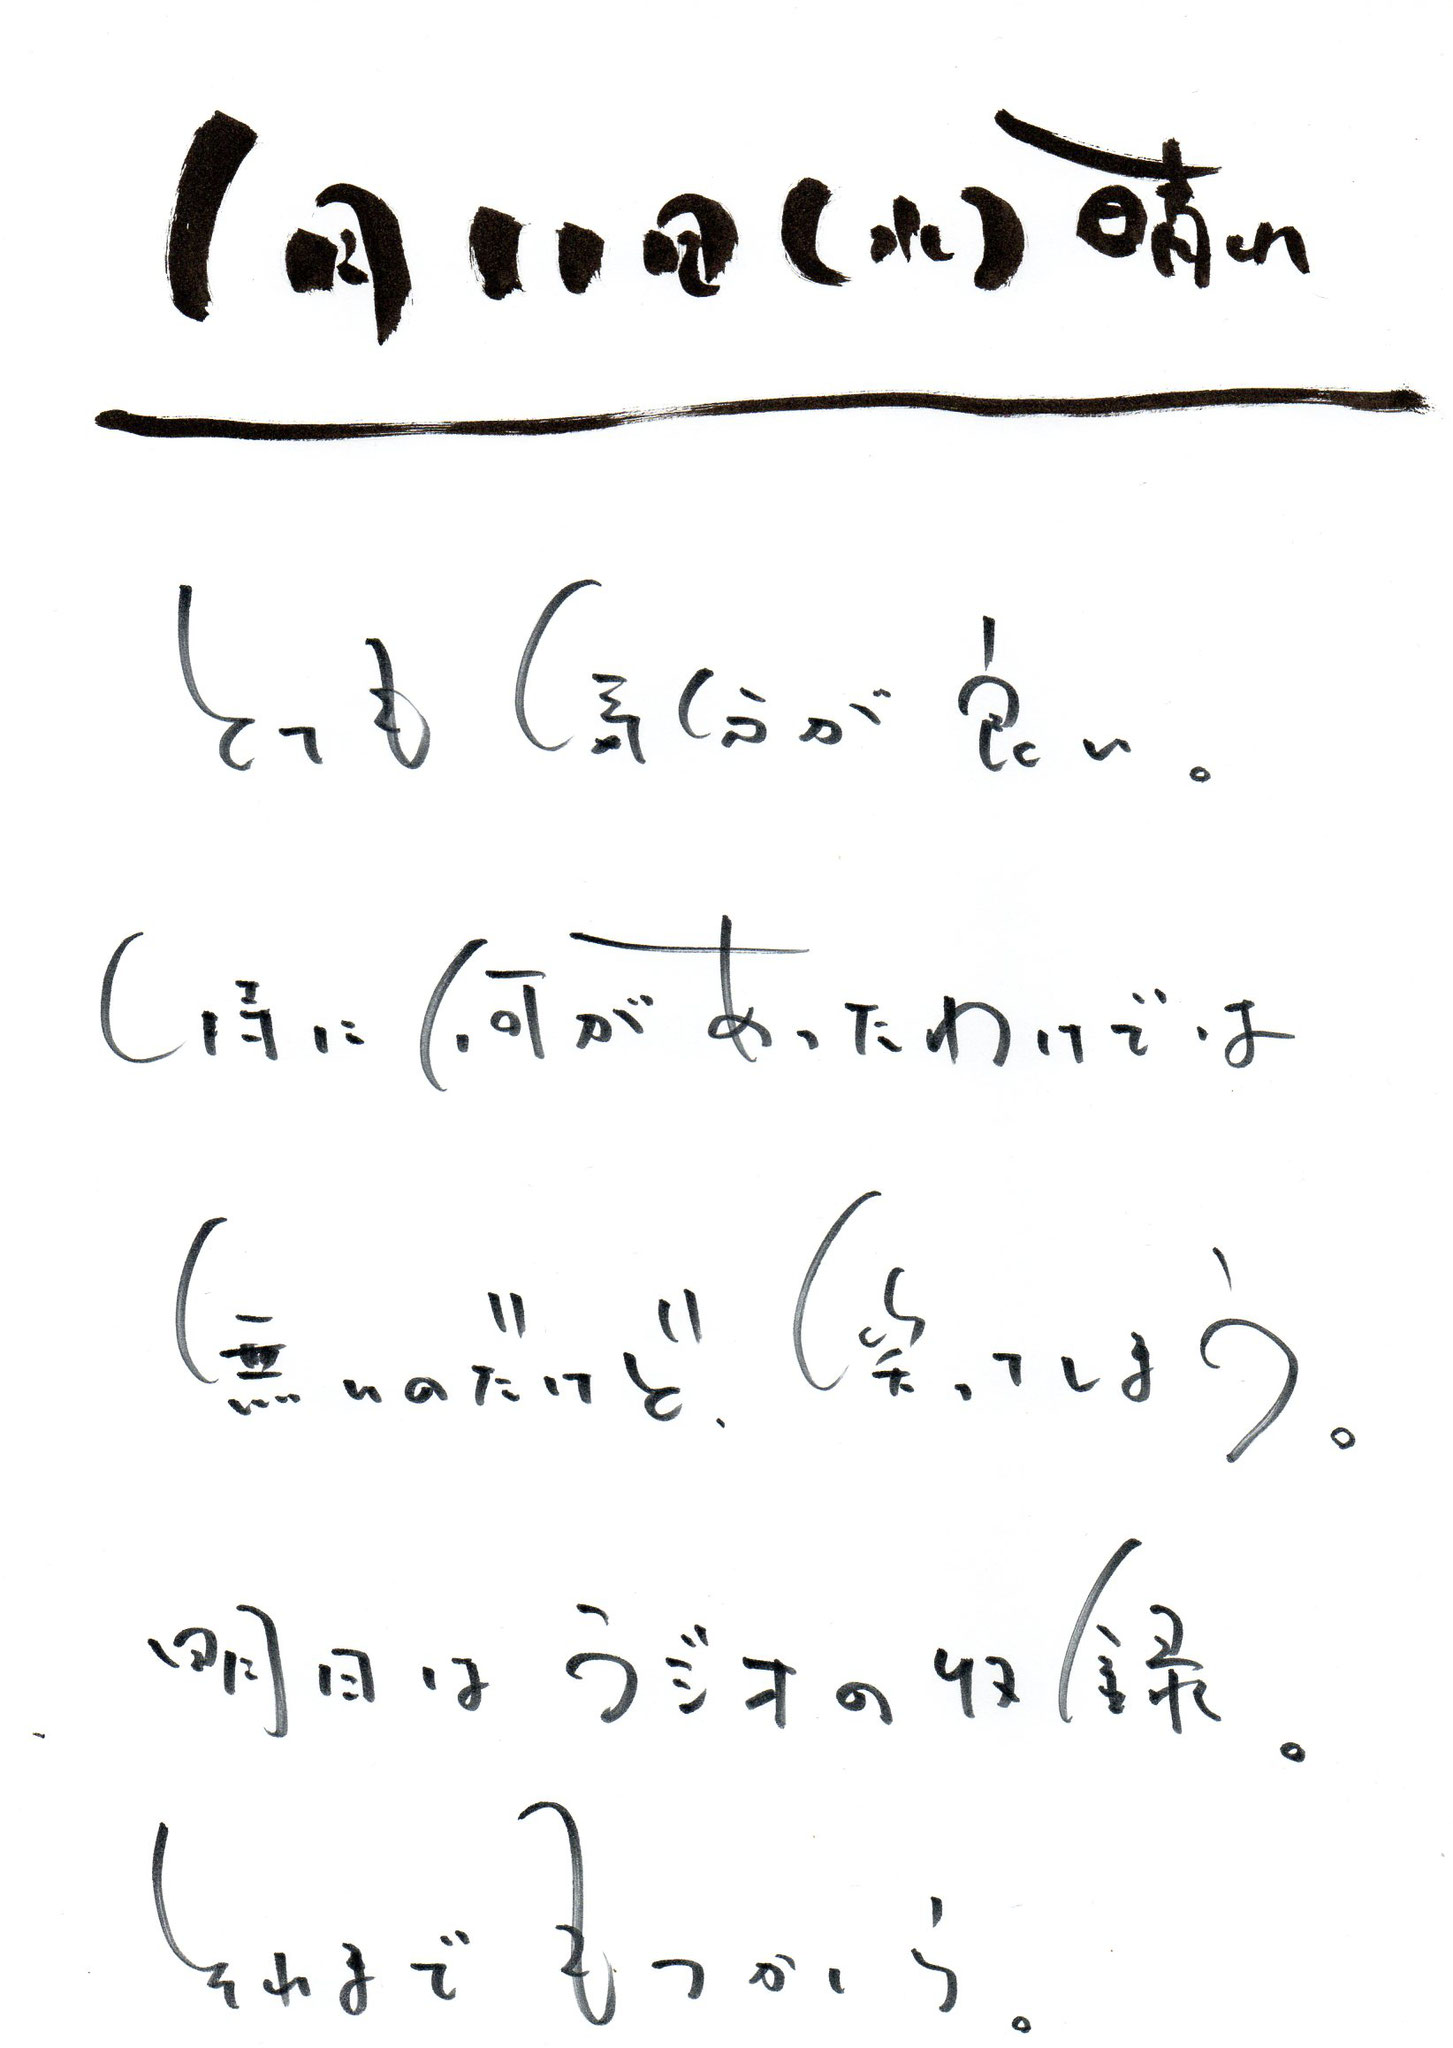 1月11日(水)晴れ
とても気分が良い。
特に何があったわけでは
無いのだけど、笑ってしまう。
明日はラジオの収録。
それまでもつかしら。